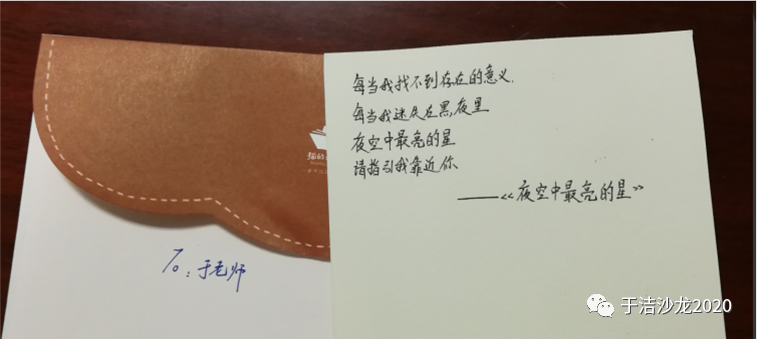 每当我找不到存在的意义.
每当我迷失在黑夜里
夜空中最亮的星
请指引我靠近你
——《夜空中最亮的星》
To:于老师
于洁沙龙2020